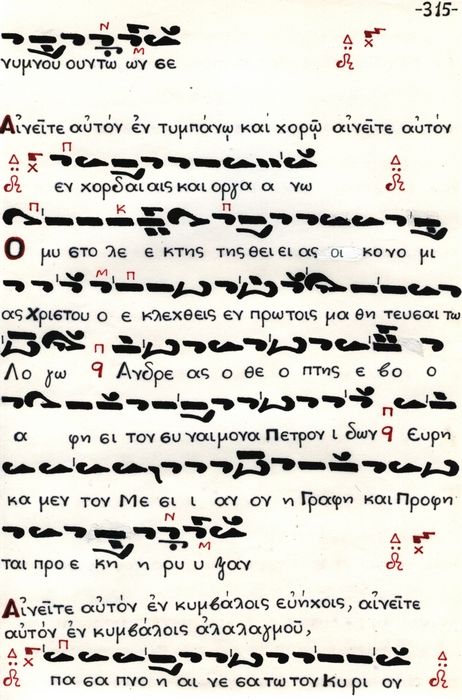 -315-
νυμνου ουντω ων σε
Αἰνεῖτε αὐτόν ἐν τυμπάνῳ καί χορῷ αἰνεῖτε αὐτόν
εν χορδαι αις και οργα α νω
Ο μυ στο λε ε κτης της θει ει ας οι κο νο μι
ας Χριστου ο ε κλεχθεις εν πρωτοις μα θη τευσαι τω
Λο γω Ανδρε ας ο θε ο πτης ε βο ο
α φη σι τον συ ναιμονα Πετρον ι δων Ευρη
κα μεν τον Με σι ι αν ον η Γραφη και Προφη
ται προ ε κη η ρυ υ ξαν
Αἰνεῖτε αὐτόν ἐν κυμβάλοις εὐήχοις, αἰνεῖτε
αὐτόν ἐν κυμβάλοις ἀλαλαγμοῦ,
πα σα πνο η αι νε σα τω τον Κυ ρι ον